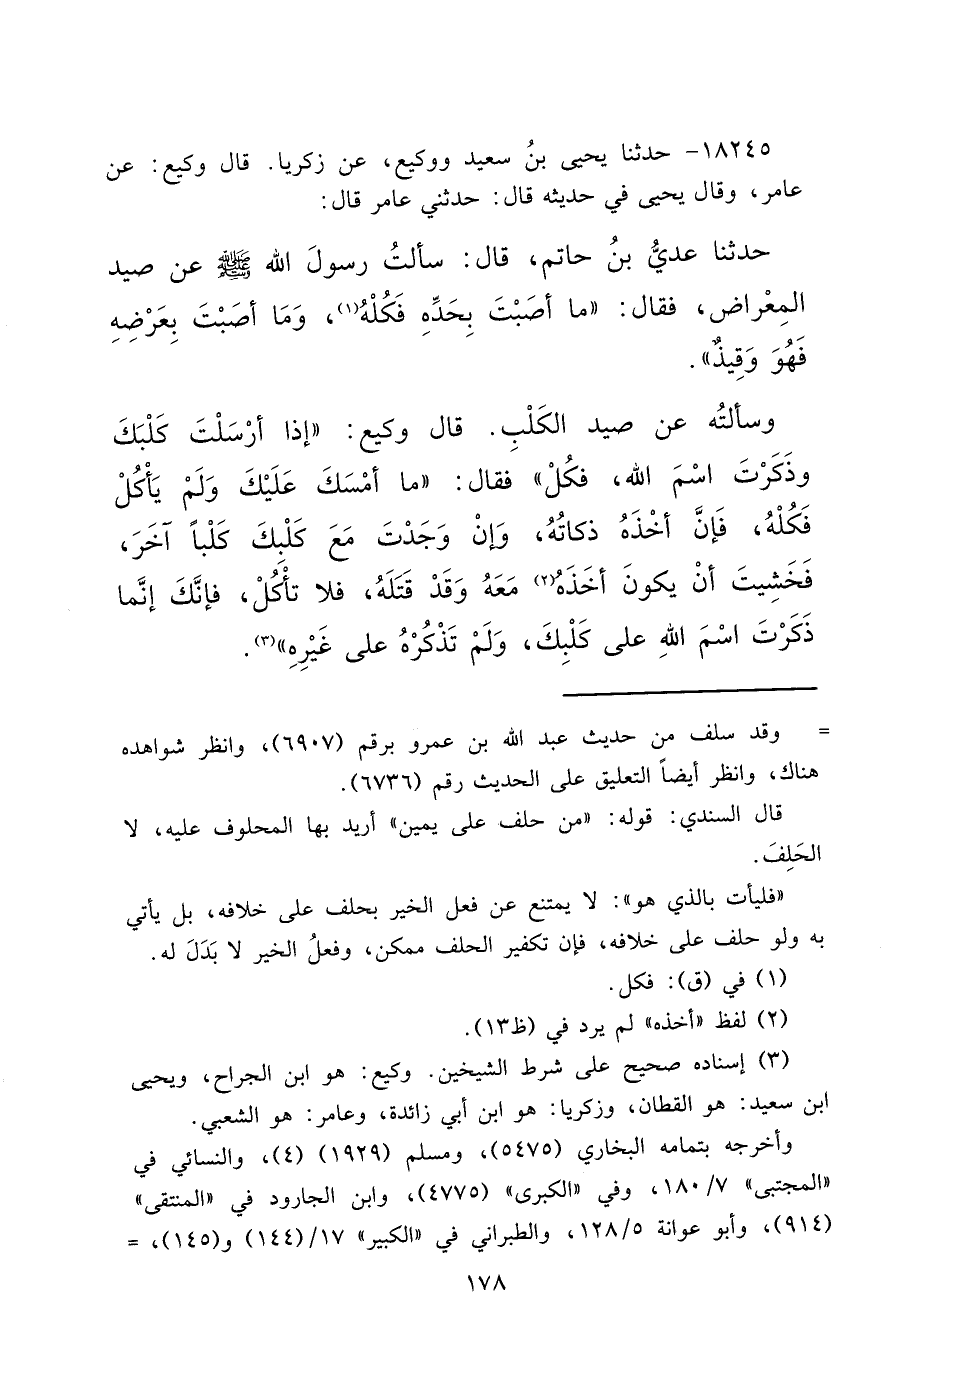 ١٨٢٤٥- حدثنا يحيى بنُ سعيد ووكيع، عن زكريا. قال وكيع: عن
عامر، وقال يحيى في حديثه قال: حدثني عامر قال:
حدثنا عديُّ بنُ حاتم، قال: سألتُ رسولَ الله ﷺ عن صيد
المِعْراض، فقال: «ما أصَبْتَ بِحَدِّهِ فَكُلْهُ(١)، وَمَا أصَبْتَ بِعَرْضِهِ
فَهُوَ وَقِيذٌ».
وسألتُه عن صيد الكَلْبِ. قال وكيع: «إذا أرْسَلْتَ كَلْبَكَ
وذَكَرْتَ اسْمَ الله، فكُلْ» فقال: «ما أمْسَكَ عَلَيْكَ وَلَمْ يَأْكُلْ
فَكُلْهُ، فَإنَّ أخْذَهُ ذكاتُهُ، وَإنْ وَجَدْتَ مَعَ كَلْبِكَ كَلْباً آخَرَ،
فَخَشِيتَ أنْ يكونَ أخَذَهُ(٢) مَعَهُ وَقَدْ قَتَلَهُ، فلا تأْكُلْ، فإنَّكَ إنَّما
ذَكَرْتَ اسْمَ اللهِ على كَلْبِكَ، وَلَمْ تَذْكُرْهُ على غَيْرِهِ»(٣).
= وقد سلف من حديث عبد الله بن عمرو برقم (٦٩٠٧)، وانظر شواهده
هناك، وانظر أيضاً التعليق على الحديث رقم (٦٧٣٦).
قال السندي: قوله: «من حلف على يمين» أريد بها المحلوف عليه، لا
الحَلِفَ.
«فليأت بالذي هو»: لا يمتنع عن فعل الخير بحلف على خلافه، بل يأتي
به ولو حلف على خلافه، فإن تكفير الحلف ممكن، وفعلُ الخير لا بَدَلَ له.
(١) في (ق): فكل.
(٢) لفظ «أخذه» لم يرد في (ظ١٣).
(٣) إسناده صحيح على شرط الشيخين. وكيع: هو ابن الجراح، ويحيى
ابن سعيد: هو القطان، وزكريا: هو ابن أبي زائدة، وعامر: هو الشعبي.
وأخرجه بتمامه البخاري (٥٤٧٥)، ومسلم (١٩٢٩) (٤)، والنسائي في
«المجتبى» ١٨٠/٧، وفي «الكبرى» (٤٧٧٥)، وابن الجارود في «المنتقى»
(٩١٤)، وأبو عوانة ١٢٨/٥، والطبراني في «الكبير» ١٧/(١٤٤) و(١٤٥)، =
١٧٨